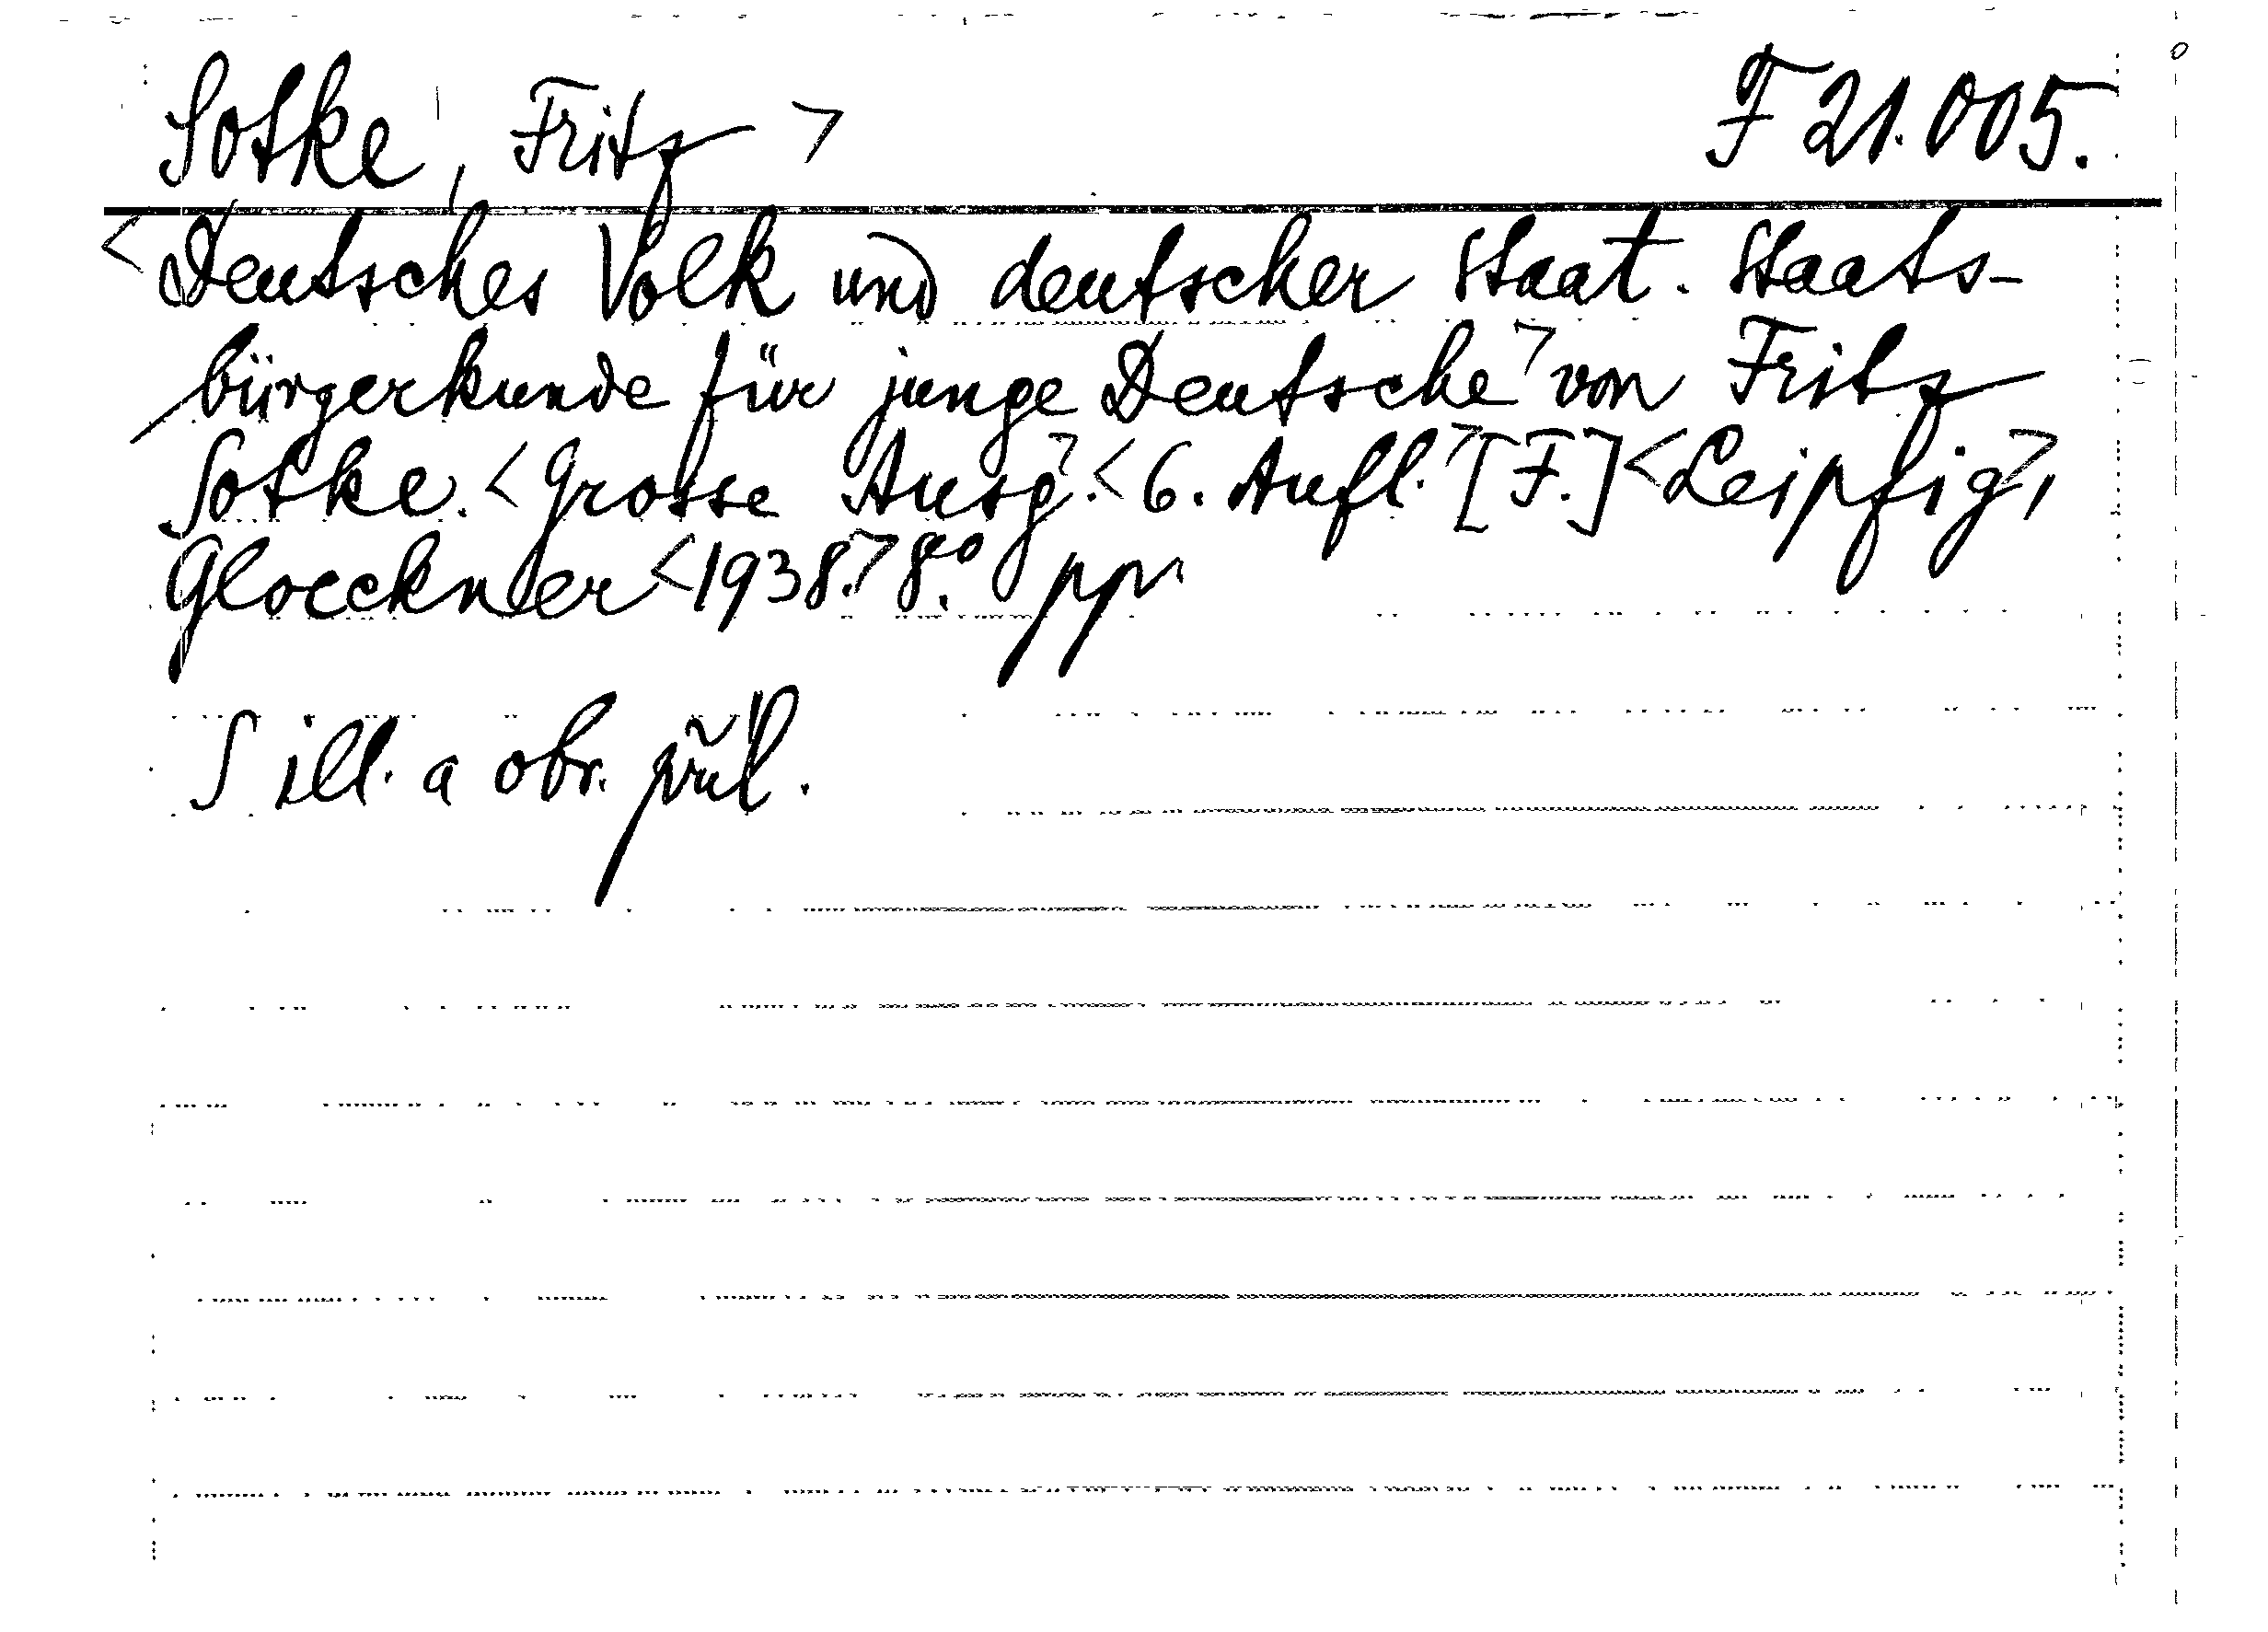 Sotke, Fritz > F 21.005.
<Deutsches Volk und deutscher Staat. Staats-
bürgerkunde für junge Deutsche> von Fritz
Sotke. <Grosse Ausg.> <6. Aufl.> [F.] <Leipzig>,
Gloeckner <1938.> 8.° pp
S ill. a obr. příl.